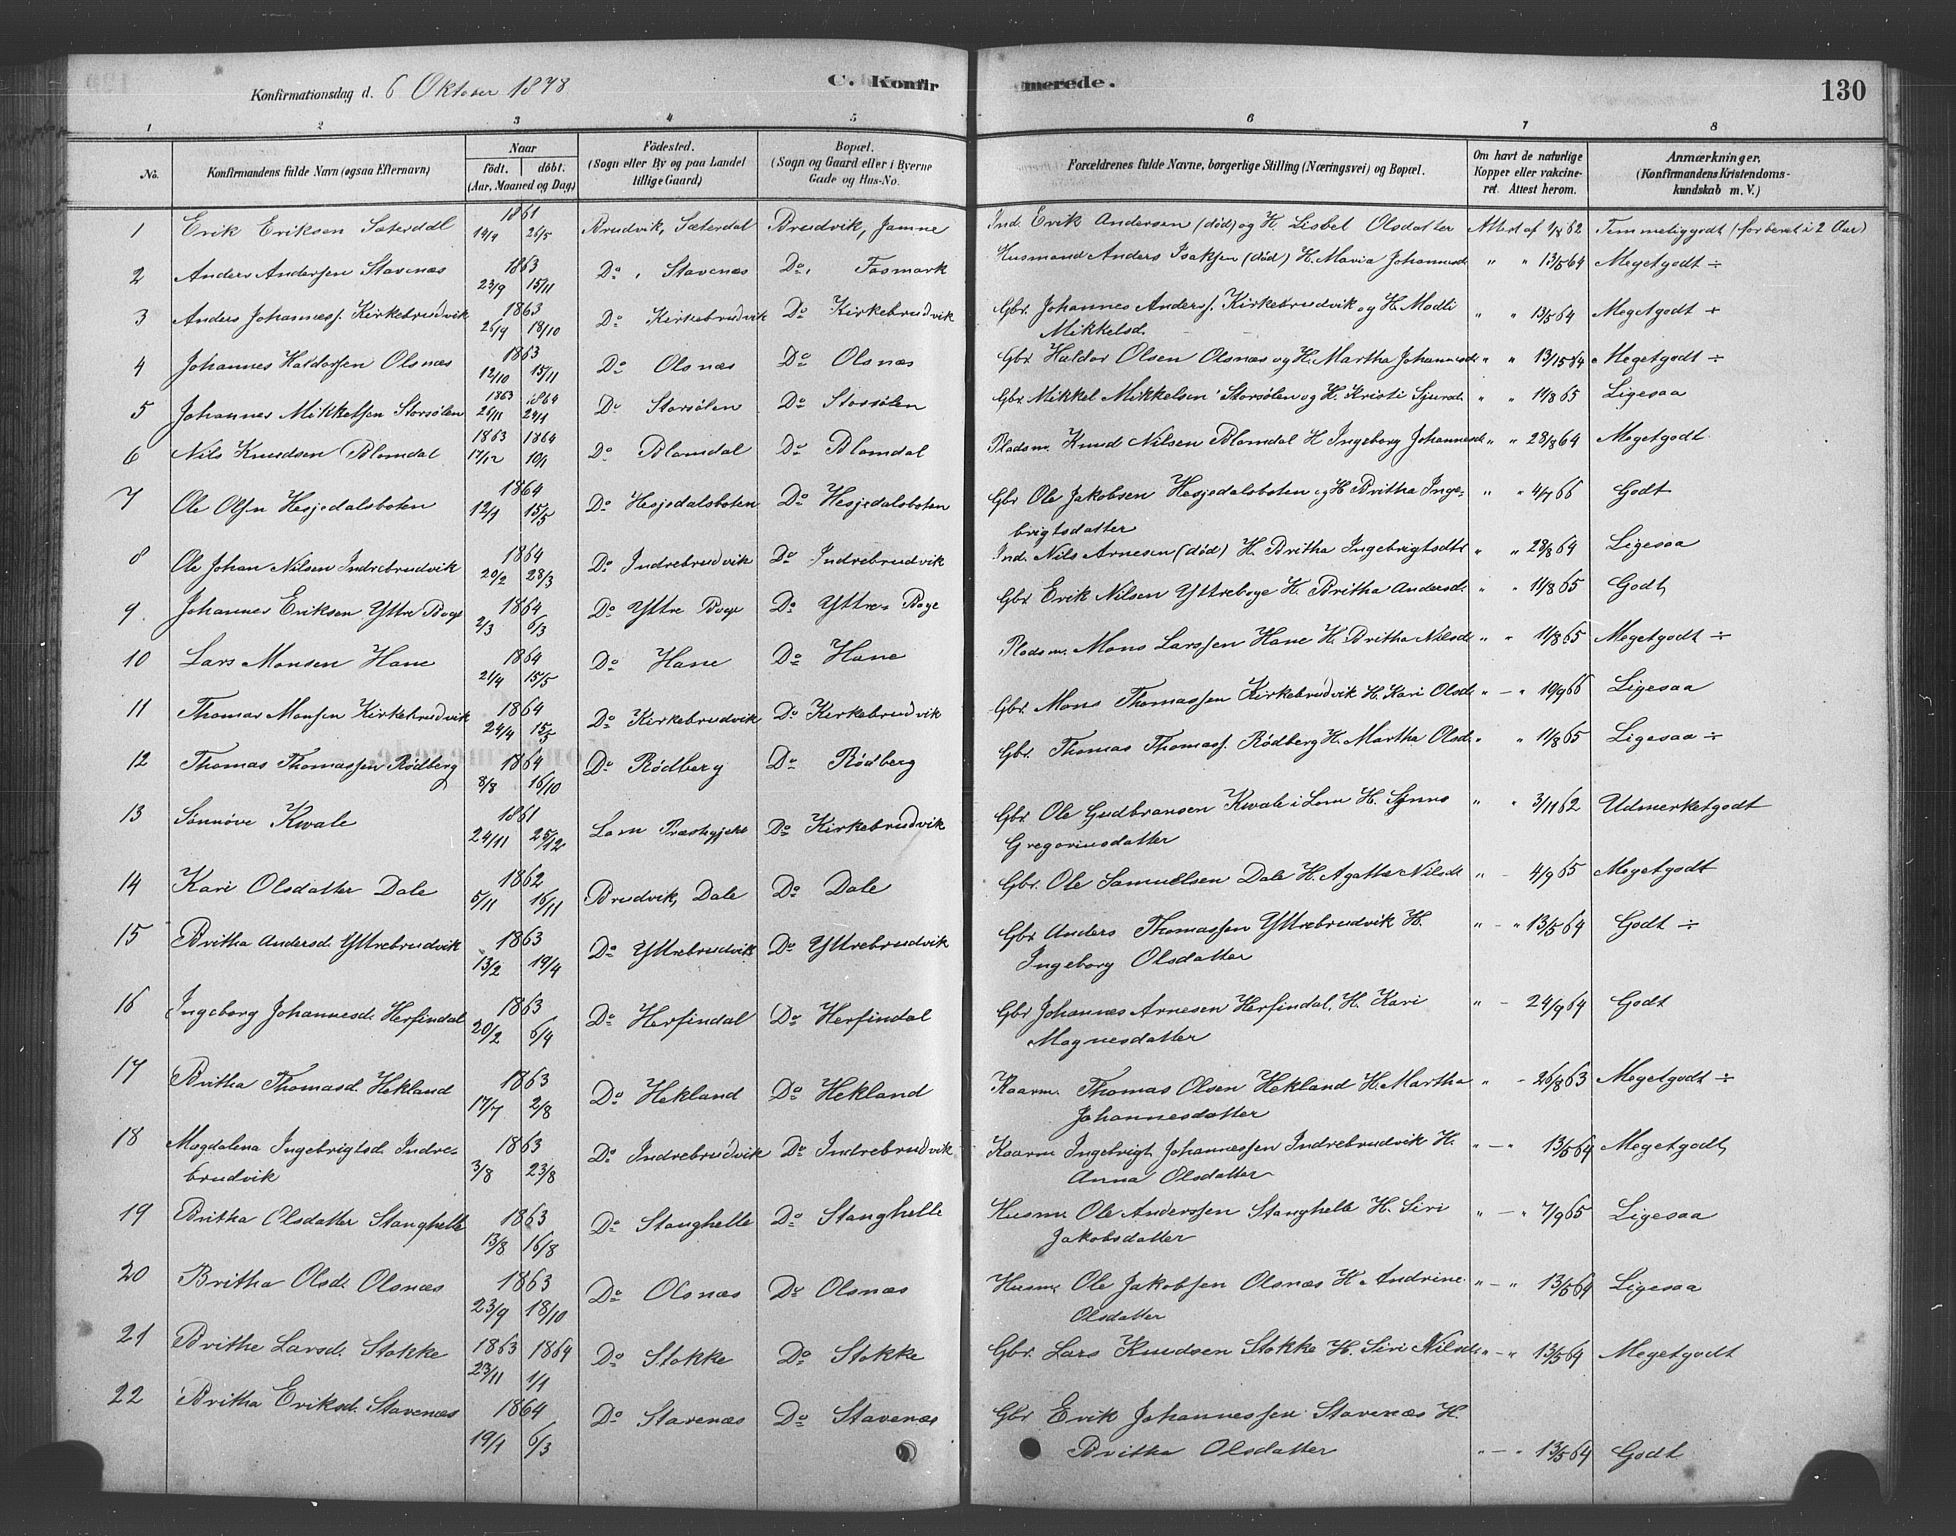 Konfirmationsdag d. 6 Oktober 1878
C. Konfirmerede.
130
1 2 3 4 5 6 7 8
No.
Konfirmandens fulde Navn (ogsaa Efternavn)
Naar
födt. döbt.
(Aar, Maaned og Dag)
Födested.
(Sogn eller By og paa Landet
tillige Gaard)
Bopæl.
(Sogn og Gaard eller i Byerne
Gade og Hus-No.
Forældrenes fulde Navne, borgerlige Stilling (Næringsvei) og Bopæl.
Om havt de naturlige
Kopper eller vakcine-
ret. Attest herom.
Anmærkninger.
(Konfirmandens Kristendoms-
kundskab m. V.)
1 Erik Eriksen Sæterdal 1861 14/4 26/5 Brudvik, Sæterdal Brudvik, Jamne Ind. Erik Andersen (død) og H. Lisbet Olsdatter Attest af 1/8 62 Temmeliggodt (forberet i 2 Aar)
2 Anders Andersen Stavenæs 1863 23/9 15/11 Do, Stavenæs Do, Fosmark Husmand Anders Isaksen (død) H. Maria Johannesd. " " 13/5 64 Megetgodt ÷
3 Anders Johanness. Kirkebrudvik 1863 25/9 18/10 Do Kirkebrudvik Do Kirkebrudvik Gbr. Johannes Anderss. Kirkebrudvik og H. Madli
Mikkelsd. " " 13/5 64 Megetgodt ÷
4 Johannes Haldorsen Olsnæs 1863 12/10 15/11 Do Olsnæs Do Olsnæs Gbr. Haldor Olsen Olsnæs og H. Martha Johannesd. " " 13/5 64 Megetgodt ÷
5 Johannes Mikkelsen Storsølen 1863 1864 24/1 Do Storsølen Do Storsølen Gbr. Mikkel Mikkelsen Storsølen og H. Kristi Sjursd. " " 11/8 65 Ligesaa
6 Nils Knudsen Blomdal 1863 1864 17/12 10/1 Do Blomdal Do Blomdal Pladsm. Knud Nilsen Blomdal H Ingeborg Johannesd. " " 28/8 64 Megetgodt
7 Ole Olsen Hesjedalsboten 1864 12/4 15/5 Do Hesjedalsboten Do Hesjedalsboten Gbr Ole Jakobsen Hesjedalsboten og H Britha Inge-
brigtsdatter " " 4/7 66 Godt
8 Ole Johan Nilsen Indrebrudvik 1864 20/2 28/3 Do Indrebrudvik Do Indrebrudvik Ind. Nils Arnesen (død) H. Britha Ingebrigtsdtt " " 28/8 64 Ligesaa
9. Johannes Eriksen Yttre Boge 1864 2/3 6/3 Do Yttre Boge Do Yttre Boge Gbr. Erik Nilsen Yttreboge H. Britha Andersd. " " 11/8 65 Godt
10 Lars Monsen Hane 1864 21/4 15/5 Do Hane Do Hane Pladsm. Mons Larssen Hane H. Britha Nilsd. " " 11/8 65 Megetgodt ÷
11 Thomas Monsen Kirkebrudvik 1864 24/4 15/5 Do Kirkebrudvik Do Kirkebrudvik Gbr. Mons Thomassen Kirkebrudvik H. Kari Olsd. " - " 19/9 66 Ligesaa
12 Thomas Thomassen Rødberg 1864 8/8 16/10 Do Rødberg Do Rødberg Gbr. Thomas Thomass. Rødberg H. Martha Olsd. " " 11/8 65 Ligesaa ÷
13 Sønnøve Kwale 1861 24/11 25/12 Lom Præstegjeld Do Kirkebrudvik Gbr. Ole Gudbransen Kwale i Lom H. Synno
Gregoriusdatter " " 3/11 62 Udmerketgodt
14 Kari Olsdatter Dale 1862 5/11 16/11 Brudvik, Dale Do Dale Gbr. Ole Samuelsen Dale H. Agatha Nilsd. " - 4/9 65 Megetgodt
15 Britha Andersd. Yttrebrudvik 1863 13/2 19/4 Do Yttrebrudvik Do Yttrebrudvik Gbr Anders Thomassen Yttrebrudvik H.
Ingeborg Olsdatter " - " 13/5 64 Godt ÷
16 Ingeborg Johannesd. Herfindal 1863 20/2 6/4 Do Herfindal Do Herfindal Gbr Johannes Arnesen Herfindal, H. Kari
Magnesdatter " - 24/9 64 Godt
17 Britha Thomasd. Hekland 1863 17/7 2/8 Do Hekland Do Hekland Kaarm. Thomas Olsen Hekland H. Martha
Johannesdatter " - 26/8 63 Megetgodt ÷
18 Magdalena Ingebrigtsd. Indre-
brudvik 1863 3/8 23/8 Do Indrebrudvik Do Indrebrudvik Kaarm Ingebrigt Johannessen Indrebrudvik H.
Anna Olsdatter " - " 13/5 64 Megetgodt
19 Britha Olsdatter Stanghelle 1863 13/8 16/8 Do Stanghelle Do Stanghelle Husm. Ole Anderssen Stanghelle H. Siri
Jakobsdatter " - " 7/9 65 Ligesaa
20 Britha Olsd. Olsnæs 1863 23/9 18/10 Do Olsnæs Do Olsnæs Husm. Ole Jakobsen Olsnæs H. Andrine
Olsdatter " - " 13/5 64 Ligesaa
21 Britha Larsd. Stokke 1863 1864 23/11 1/1 Do Stokke Do Stokke Gbr. Lars Knudsen Stokke H. Siri Nilsd. " - " 13/5 64 Megetgodt
22 Britha Eriksd. Stavenæs 1864 19/1 6/3 Do Stavenæs Do Stavenæs Gbr Erik Johannessen Stavenæs H.
Britha Olsdatter " - " 13/5 64 Godt